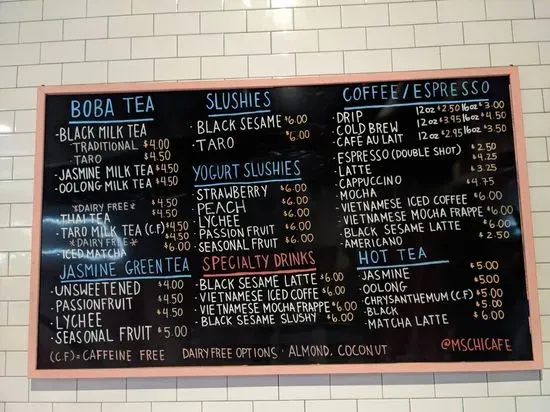 BOBA TEA
-BLACK MILK TEA
TRADITIONAL $4.00
TARO $4.00
-JASMINE MILK TEA $4.50
-OOLONG MILK TEA $4.50
*DAIRY FREE* $4.50
-THAI TEA $4.50
-TARO MILK TEA (C.F) $4.50
*DAIRY FREE*
-ICED MATCHA $6.00
JASMINE GREEN TEA
-UNSWEETENED $4.00
-PASSIONFRUIT $4.50
-LYCHEE $4.50
-SEASONAL FRUIT $5.00
SLUSHIES
-BLACK SESAME $6.00
-TARO $6.00
YOGURT SLUSHIES
-STRAWBERRY $6.00
-PEACH $6.00
-LYCHEE $6.00
-PASSION FRUIT $6.00
-SEASONAL FRUIT $6.00
SPECIALTY DRINKS
-BLACK SESAME LATTE $6.00
-VIETNAMESE ICED COFFE $6.00
-VIETNAMESE MOCHA FRAPPE $6.00
-BLACK SESAME SLUSHY $6.00
COFFEE/ESPRESSO
-DRIP 12oz $2.50 16oz $3.00
-COLD BREW 12oz $3.95 16oz $4.50
-CAFÉ AU LAIT 12oz $2.95 16oz $3.50
-ESPRESSO (DOUBLE SHOT) $2.50
-LATTE $4.25
-CAPPUCCINO $3.25
-MOCHA $4.75
-VIETNAMESE ICED COFFEE $6.00
-VIETNAMESE MOCHA FRAPPE $6.00
-BLACK SESAME LATTE $6.00
-AMERICANO $2.50
HOT TEA
-JASMINE $5.00
-OOLONG $5.00
-CHRYSANTHEMUM (C.F) $5.00
-BLACK $5.00
-MATCHA LATTE $6.00
(C.F) = CAFFEINE FREE DAIRY FREE OPTIONS - ALMOND, COCONUT
@MSCHICAFE